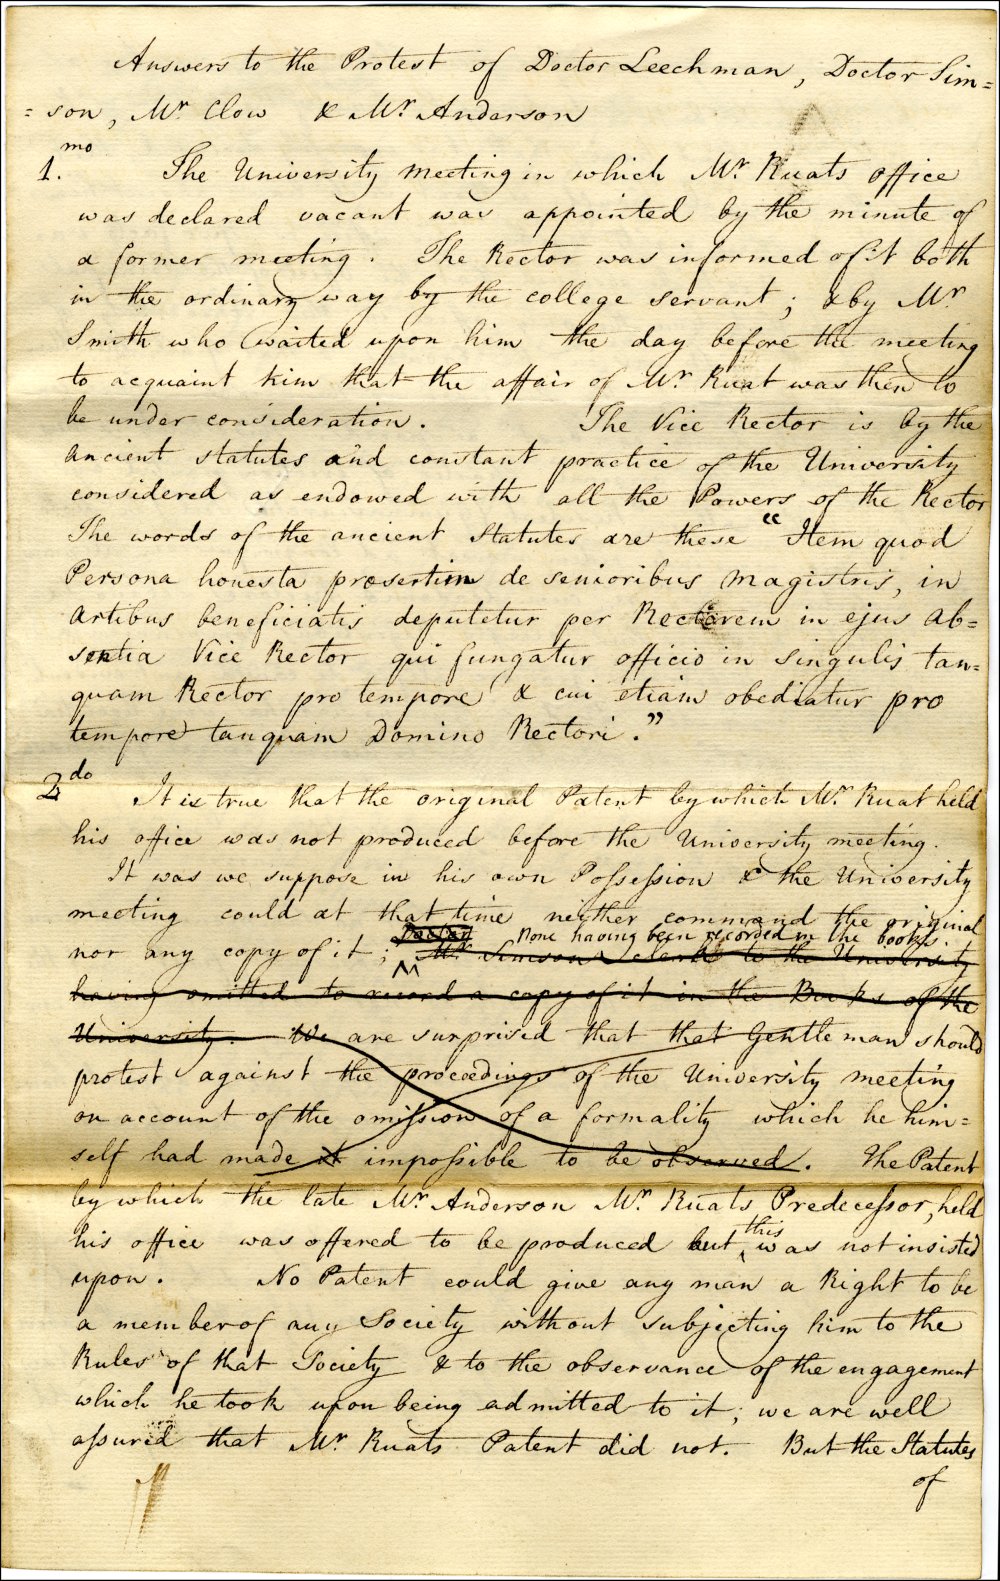 Answers to the Protest of Doctor Leechman, Doctor Sim=
=son, Mr Clow & Mr Anderson
1.mo The University meeting in which Mr. Ruats office
was declared vacant was appointed by the minute of
a former meeting. The Rector was informed of it both
in the ordinary way by the college servant; & by Mr.
Smith who waited upon him the day before the meeting
to acquaint him that the affair of Mr. Ruat was then to
be under consideration. The Vice Rector is by the
ancient statutes and constant practice of the University
considered as endowed with all the Powers of the Rector
The words of the ancient Statutes are these "Item quod
Persona honesta presertim de senioribus magistris, in
artibus beneficiatis deputetur per Rectorem in ejus ab=
sentia Vice Rector qui fungatur officio in singulis tan=
quam Rector pro tempore & cui etiam obediatur pro
tempore tanquam Domino Rectori."
2do It is true that the original Patent by which Mr. Ruat held
his office was not produced before the University meeting.
It was we suppose in his own Possession & the University
meeting could at that time neither command the original
Doctor none having been recorded in the books.
nor any copy of it; Mr. Simson clerk to the University
having omitted to record a copy of it in the Books of the
University. We are surprised that that Gentleman should
protest against the proceedings of the University meeting
on account of the omission of a formality which he him=
self had made it impossible to be observed. The Patent
by which the late Mr. Anderson Mr. Ruats Predecessor, held
his office was offered to be produced but this was not insisted
upon. No Patent could give any man a Right to be
a member of any Society without subjecting him to the
Rules of that Society & to the observance of the engagement
which he took upon being admitted to it; we are well
assured that Mr. Ruats Patent did not. But the Statutes
of